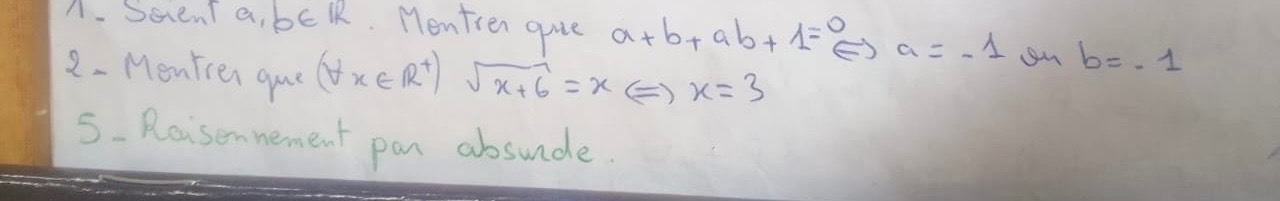 1- Soient a,b∈ℝ. Montrer que a+b+ab+1=0 ⇔ a=-1 ou b=-1
2- Montrer que (∀x∈ℝ⁺) √x+6 = x ⇔ x=3
5- Raisonnement par absurde.